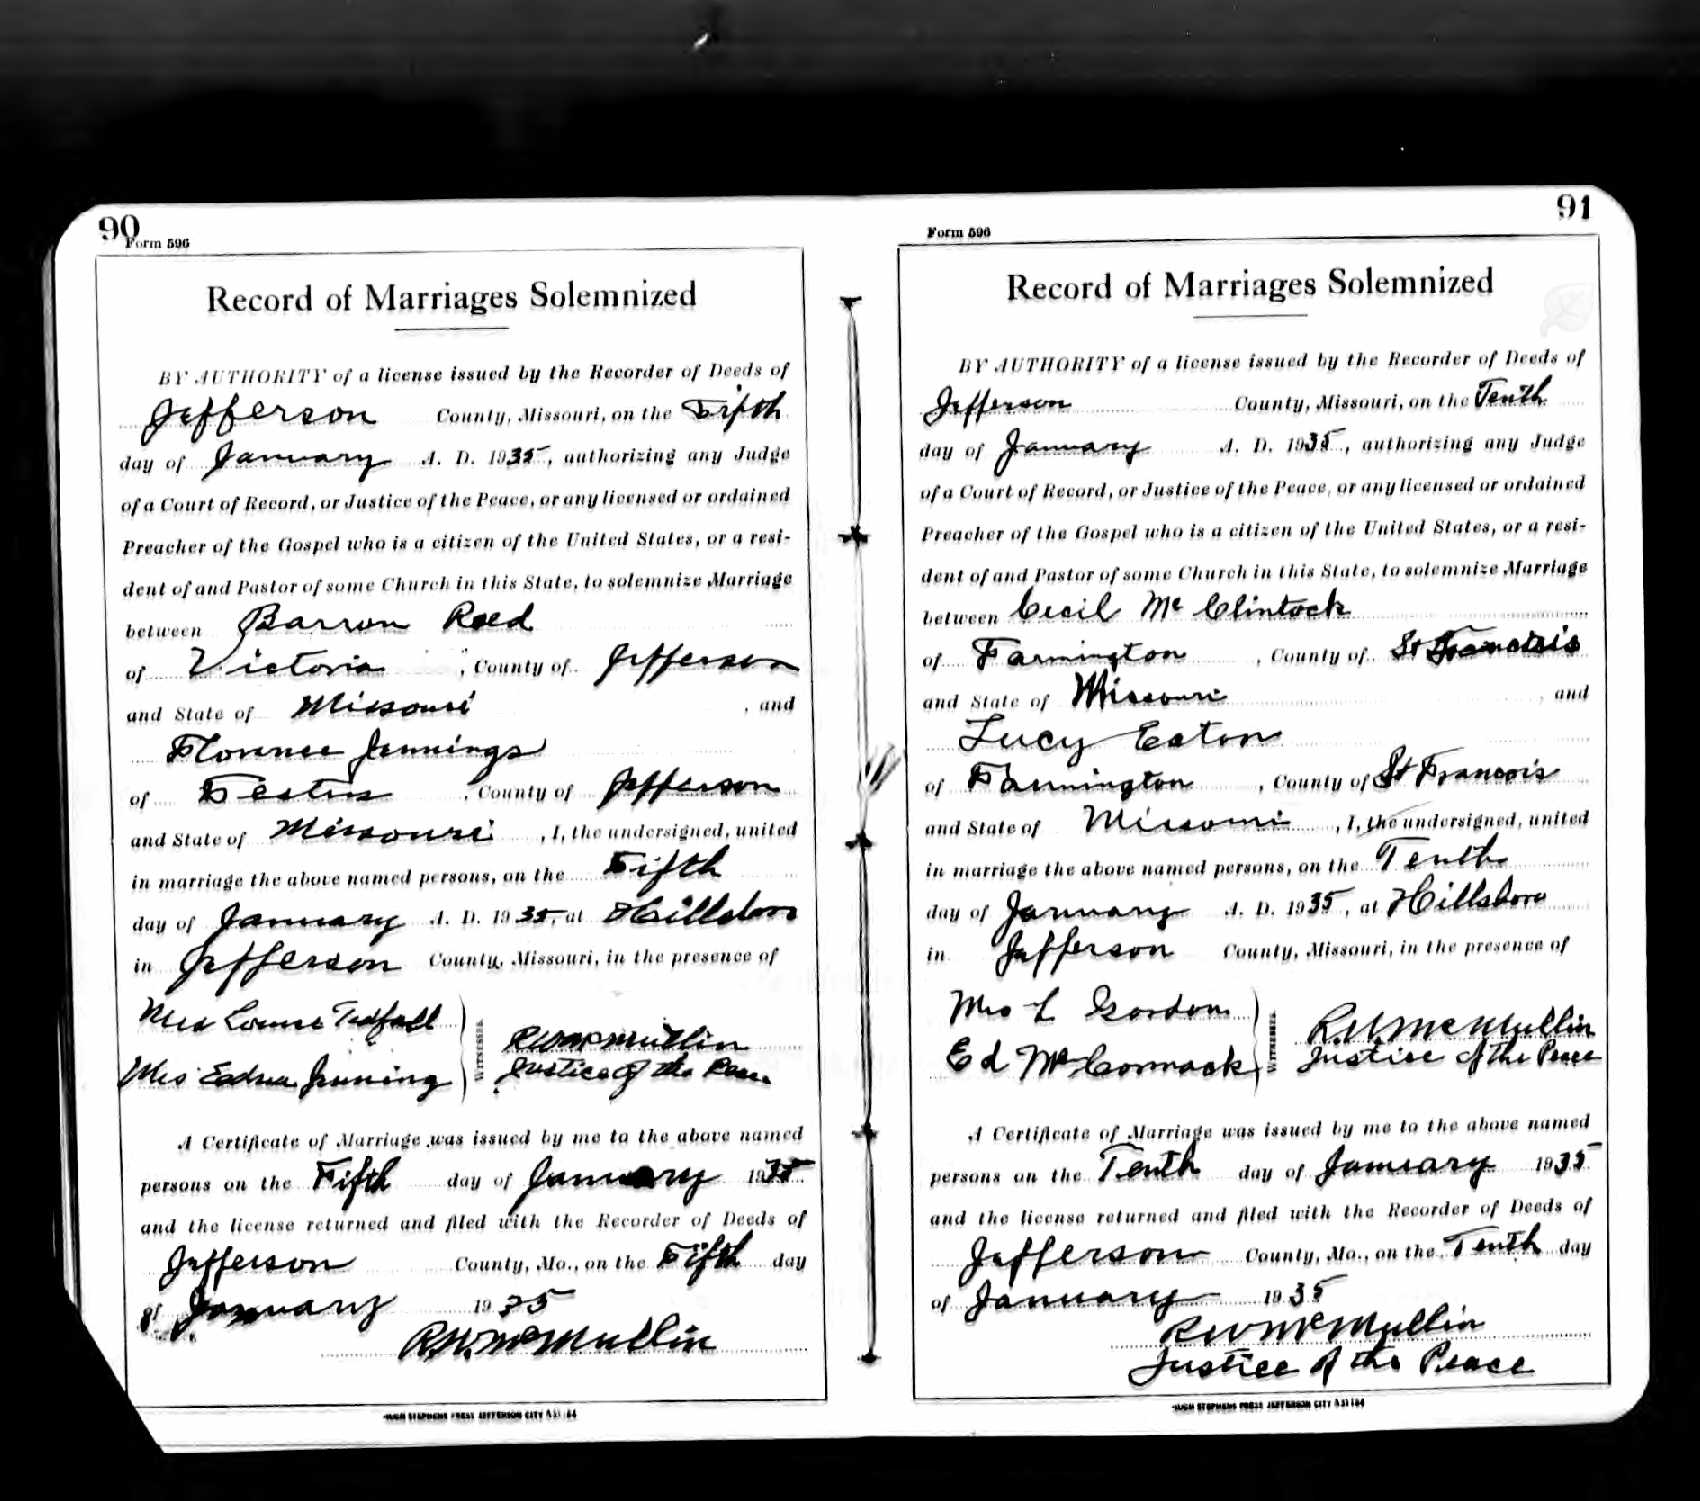 90
Form 596
Record of Marriages Solemnized
BY AUTHORITY of a license issued by the Recorder of Deeds of
Jefferson County, Missouri, on the Fifth
day of January A. D. 1935, authorizing any Judge
of a Court of Record, or Justice of the Peace, or any licensed or ordained
Preacher of the Gospel who is a citizen of the United States, or a resi-
dent of and Pastor of some Church in this State, to solemnize Marriage
between Barron Reed
of Victoria, County of Jefferson
and State of Missouri, and
Florence Jennings
of Festus, County of Jefferson
and State of Missouri, I, the undersigned, united
in marriage the above named persons, on the Fifth
day of January A. D. 1935, at Hillsboro
in Jefferson County, Missouri, in the presence of
Mrs Louise
Mrs Edna Jenning
WITNESSES
RW McMullin
Justice of the Peace
A Certificate of Marriage was issued by me to the above named
persons on the Fifth day of January 1935
and the license returned and filed with the Recorder of Deeds of
Jefferson County, Mo., on the Fifth day
of January 1935
R.W. McMullin
HUGH STEPHENS PRESS JEFFERSON CITY
91
Form 596
Record of Marriages Solemnized
BY AUTHORITY of a license issued by the Recorder of Deeds of
Jefferson County, Missouri, on the Tenth
day of January A. D. 1935, authorizing any Judge
of a Court of Record, or Justice of the Peace, or any licensed or ordained
Preacher of the Gospel who is a citizen of the United States, or a resi-
dent of and Pastor of some Church in this State, to solemnize Marriage
between Cecil Mc Clintock
of Farmington, County of St Francois
and State of Missouri, and
Lucy Eaton
of Farmington, County of St Francois
and State of Missouri, I, the undersigned, united
in marriage the above named persons, on the Tenth
day of January A. D. 1935, at Hillsboro
in Jefferson County, Missouri, in the presence of
Mrs L Gordon
Ed McCormack
WITNESSES
R.W. McMullin
Justice of the Peace
A Certificate of Marriage was issued by me to the above named
persons on the Tenth day of January 1935
and the license returned and filed with the Recorder of Deeds of
Jefferson County, Mo., on the Tenth day
of January 1935
RW McMullin
Justice of the Peace
HUGH STEPHENS PRESS JEFFERSON CITY